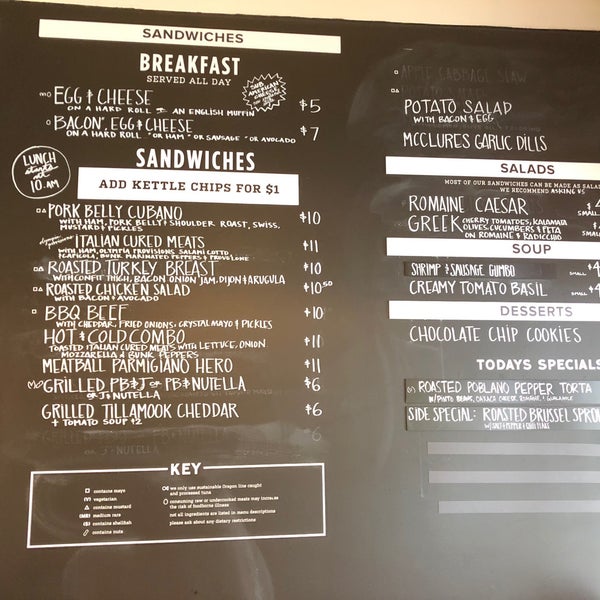 SANDWICHES
BREAKFAST
SERVED ALL DAY
EGG & CHEESE $5
ON A HARD ROLL AN ENGLISH MUFFIN
BACON, EGG & CHEESE $7
ON A HARD ROLL "OR HAM "OR SAUSAGE "OR AVOCADO
LUNCH
starts
10 AM
SANDWICHES
ADD KETTLE CHIPS FOR $1
PORK BELLY CUBANO $10
WITH HAM, PORK BELLY & SHOULDER ROAST, SWISS,
MUSTARD & PICKLES
ITALIAN CURED MEATS $11
WITH HAM, OLYMPIA PROVISIONS SALAMI COTTO
& CAPICOLA, BUNK MARINATED PEPPERS & PROVOLONE
ROASTED TURKEY BREAST $10
WITH CONFIT THIGH, BACON ONION JAM, DIJON & ARUGULA
ROASTED CHICKEN SALAD $10.50
WITH BACON & AVOCADO
BBQ BEEF $10
WITH CHEDDAR, FRIED ONIONS, CRYSTAL MAYO & PICKLES
HOT & COLD COMBO $11
TOASTED ITALIAN CURED MEATS WITH LETTUCE, ONION
MOZZARELLA & BUNK PEPPERS
MEATBALL PARMIGIANO HERO $11
(V) GRILLED PB & J OR PB & NUTELLA $6
OR J & NUTELLA
GRILLED TILLAMOOK CHEDDAR $6
+ TOMATO SOUP +2
OR J - NUTELLA
KEY
contains mayo
(V) vegetarian
contains mustard
(MR) medium rare
(S) contains shellfish
contains nuts
we only use sustainable Oregon line caught
and processed tuna
consuming raw or undercooked meats may increase
the risk of foodborne illness
not all ingredients are listed in menu descriptions
please ask about any dietary restrictions
APPLE CABBAGE SLAW
POTATO SALAD
WITH BACON & EGG
MCCLURES GARLIC DILLS
SALADS
MOST OF OUR SANDWICHES CAN BE MADE AS SALAD
WE RECOMMEND ASKING US
ROMAINE CAESAR SMALL
GREEK CHERRY TOMATOES, KALAMATA
OLIVES, CUCUMBERS & FETA
ON ROMAINE & RADICCHIO SMALL
SOUP
SHRIMP & SAUSAGE GUMBO SMALL
CREAMY TOMATO BASIL SMALL
DESSERTS
CHOCOLATE CHIP COOKIES
TODAYS SPECIALS
(V) ROASTED POBLANO PEPPER TORTA
W/ PINTO BEANS, OAXACA CHEESE, ROMAINE, & GUACAMOLE
SIDE SPECIAL: ROASTED BRUSSEL SPROU
W/ SALT & PEPPER & CHILI FLAKES